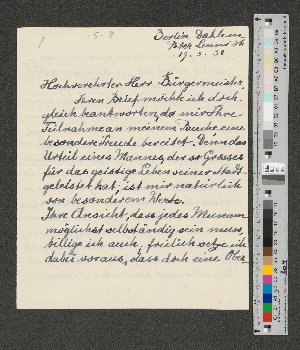 1
Berlin Dahlem
19. 3. 30
Hochverehrter Herr Bürgermeister,
Ihren Brief möchte ich doch
gleich beantworten, da mir Ihre
Teilnahme an meinem Buche eine
besondere Freude bereitet. Denn das
Urteil eines Mannes, der so Grosses
für das geistige Leben seiner Stadt
geleistet hat, ist mir natürlich
von besonderem Werte.
Ihre Ansicht, dass jedes Museum
möglichst selbständig sein muss,
billige ich auch, freilich setze ich
dabei voraus, dass doch eine Ober-